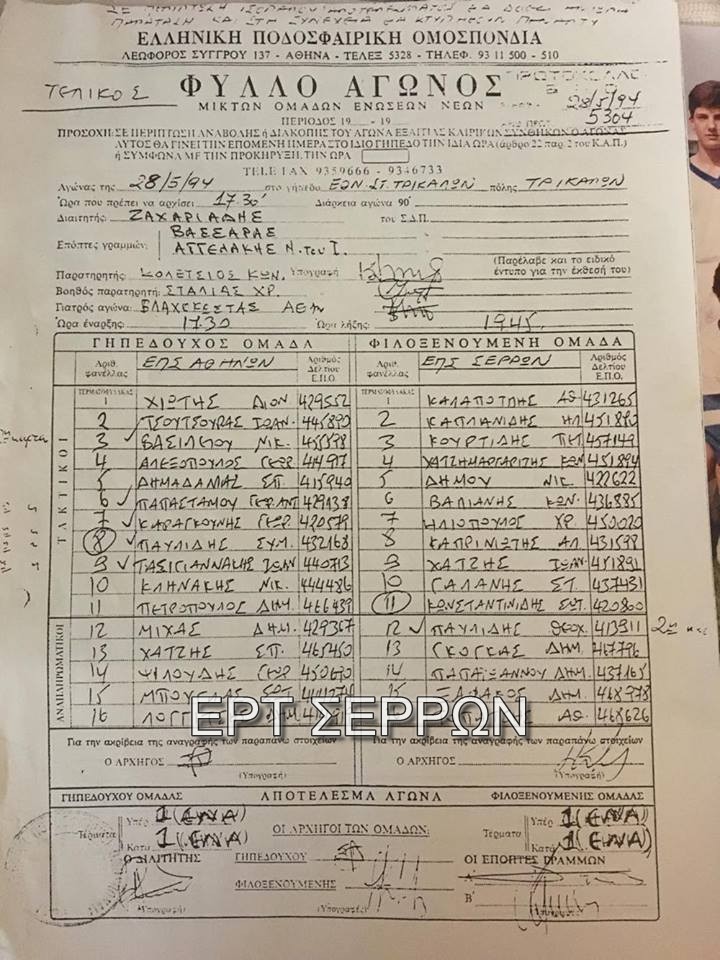 ΕΛΛΗΝΙΚΗ ΠΟΔΟΣΦΑΙΡΙΚΗ ΟΜΟΣΠΟΝΔΙΑ
ΛΕΩΦΟΡΟΣ ΣΥΓΓΡΟΥ 137 - ΑΘΗΝΑ - ΤΕΛΕΞ 5328 - ΤΗΛΕΦ. 93 11 500 - 510
ΤΕΛΙΚΟΣ
ΦΥΛΛΟ ΑΓΩΝΟΣ
ΠΡΩΤΟΚΟΛΛΟ
ΜΙΚΤΩΝ ΟΜΑΔΩΝ ΕΝΩΣΕΩΝ ΝΕΩΝ
28/5/94
ΠΕΡΙΟΔΟΣ 19 - 19
5304
ΠΡΟΣΟΧΗ: ΣΕ ΠΕΡΙΠΤΩΣΗ ΑΝΑΒΟΛΗΣ ή ΔΙΑΚΟΠΗΣ ΤΟΥ ΑΓΩΝΑ ΕΞΑΙΤΙΑΣ ΚΑΙΡΙΚΩΝ ΣΥΝΘΗΚΩΝ Ο ΑΓΩΝΑΣ
ΑΥΤΟΣ ΘΑ ΓΙΝΕΙ ΤΗΝ ΕΠΟΜΕΝΗ ΗΜΕΡΑ ΣΤΟ ΙΔΙΟ ΓΗΠΕΔΟ ΤΗΝ ΙΔΙΑ ΩΡΑ (άρθρο 22 παρ. 2 του Κ.Α.Π.)
ή ΣΥΜΦΩΝΑ ΜΕ ΤΗΝ ΠΡΟΚΗΡΥΞΗ ΤΗΝ ΩΡΑ
TELEFAX 9359666 - 9346733
Αγώνας της 28/5/94 στο γήπεδο ΕΘΝ. ΣΤ. ΤΡΙΚΑΛΩΝ πόλης ΤΡΙΚΑΛΩΝ
Ώρα που πρέπει να αρχίσει 17.30' Διάρκεια αγώνα 90΄
Διαιτητής: ΖΑΧΑΡΙΑΔΗΣ του Σ.Δ.Π.
ΒΑΣΣΑΡΑΣ
Επόπτες γραμμών: ΑΓΓΕΛΑΚΗΣ Ν. του Ι.
Παρατηρητής: ΚΟΛΕΤΣΙΟΣ ΚΩΝ. Υπογραφή (Παρέλαβε και το ειδικό
έντυπο για την έκθεσή του)
Βοηθός παρατηρητή: ΣΤΑΛΙΑΣ ΧΡ.
Γιατρός αγώνα:
Ώρα έναρξης: 17.30 Ώρα λήξης: 19.45
ΓΗΠΕΔΟΥΧΟΣ ΟΜΑΔΑ ΦΙΛΟΞΕΝΟΥΜΕΝΗ ΟΜΑΔΑ
Αριθ. φανέλλας ΕΠΣ ΑΘΗΝΩΝ Αριθμός Δελτίου Ε.Π.Ο. Αριθ. φανέλλας ΕΠΣ ΣΕΡΡΩΝ Αριθμός Δελτίου Ε.Π.Ο.
ΤΑΚΤΙΚΟΙ
ΤΕΡΜΑΤΟΦΥΛΑΚΑΣ 1 ΧΙΩΤΗΣ ΔΙΟΝ 429552 ΤΕΡΜΑΤΟΦΥΛΑΚΑΣ 1 ΚΑΛΑΠΟΤΗΣ ΑΘ 431265
2 ΤΣΟΥΤΣΟΥΡΑΣ ΙΩΑΝ. 445890 2 ΚΑΠΛΑΝΙΔΗΣ ΗΛ 451880
3 ΒΑΣΙΛΕΙΟΥ ΝΙΚ. 3 ΚΟΥΡΤΙΔΗΣ ΠΕΤ 457149
4 ΑΛΕΞΟΠΟΥΛΟΣ ΓΕΩΡ 4 ΧΑΤΖΗΜΑΡΓΑΡΙΤΗΣ ΚΩΝ 451894
5 ΔΗΜΑΔΑΜΑΣ ΣΠ. 415940 5 ΔΗΜΟΥ ΝΙΚ. 422622
6 ΠΑΠΑΣΤΑΜΟΥ ΓΕΩΡ.ΑΝΤ 429138 6 ΒΑΛΙΑΝΗΣ ΚΩΝ. 436885
7 ΚΑΡΑΓΚΟΥΝΗΣ ΓΕΩΡ. 420579 7 ΗΛΙΟΠΟΥΛΟΣ ΧΡ. 450020
8 ΠΑΥΛΙΔΗΣ ΣΥΜ. 432168 8 ΚΑΠΡΙΝΙΩΤΗΣ ΑΛ. 431598
9 ΤΑΣΙΓΙΑΝΝΑΚΗΣ ΙΩΑΝ 440713 9 ΧΑΤΖΗΣ ΙΩΑΝ. 451891
10 ΚΛΗΝΑΚΗΣ ΝΙΚ. 444486 10 ΓΑΛΑΝΗΣ ΣΤ. 437431
11 ΠΕΤΡΟΠΟΥΛΟΣ ΔΗΜ. 466439 11 ΚΩΝΣΤΑΝΤΙΝΙΔΗΣ ΣΩΤ. 420800
ΑΝΑΠΛΗΡΩΜΑΤΙΚΟΙ
12 ΜΙΧΑΣ ΔΗΜ. 429367 12 ΠΑΥΛΙΔΗΣ ΘΕΟΧ. 413911
13 ΧΑΤΖΗΣ ΣΠ. 465450 13 ΓΚΟΓΚΑΣ ΔΗΜ. 467796
14 ΨΙΛΟΥΔΗΣ ΓΕΩΡ 450690 14 ΠΑΠΑΪΩΑΝΝΟΥ ΔΗΜ. 437165
15 ΔΗΜ. 468978
16 ΑΘ. 468626
ΕΡΤ ΣΕΡΡΩΝ
Για την ακρίβεια της αναγραφής των παραπάνω στοιχείων Για την ακρίβεια της αναγραφής των παραπάνω στοιχείων
Ο ΑΡΧΗΓΟΣ Ο ΑΡΧΗΓΟΣ
(Υπογραφή) (Υπογραφή)
ΓΗΠΕΔΟΥΧΟΥ ΟΜΑΔΑΣ ΑΠΟΤΕΛΕΣΜΑ ΑΓΩΝΑ ΦΙΛΟΞΕΝΟΥΜΕΝΗΣ ΟΜΑΔΑΣ
Τέρματα Υπέρ 1 (ΕΝΑ) Τέρματα Υπέρ 1 (ΕΝΑ)
Κατά 1 (ΕΝΑ) ΟΙ ΑΡΧΗΓΟΙ ΤΩΝ ΟΜΑΔΩΝ: Κατά 1 (ΕΝΑ)
Ο ΔΙΑΙΤΗΤΗΣ ΓΗΠΕΔΟΥΧΟΥ ΟΙ ΕΠΟΠΤΕΣ ΓΡΑΜΜΩΝ
Α΄
ΦΙΛΟΞΕΝΟΥΜΕΝΗΣ
Β΄
(Υπογραφή) (Υπογραφή) (Υπογραφή)